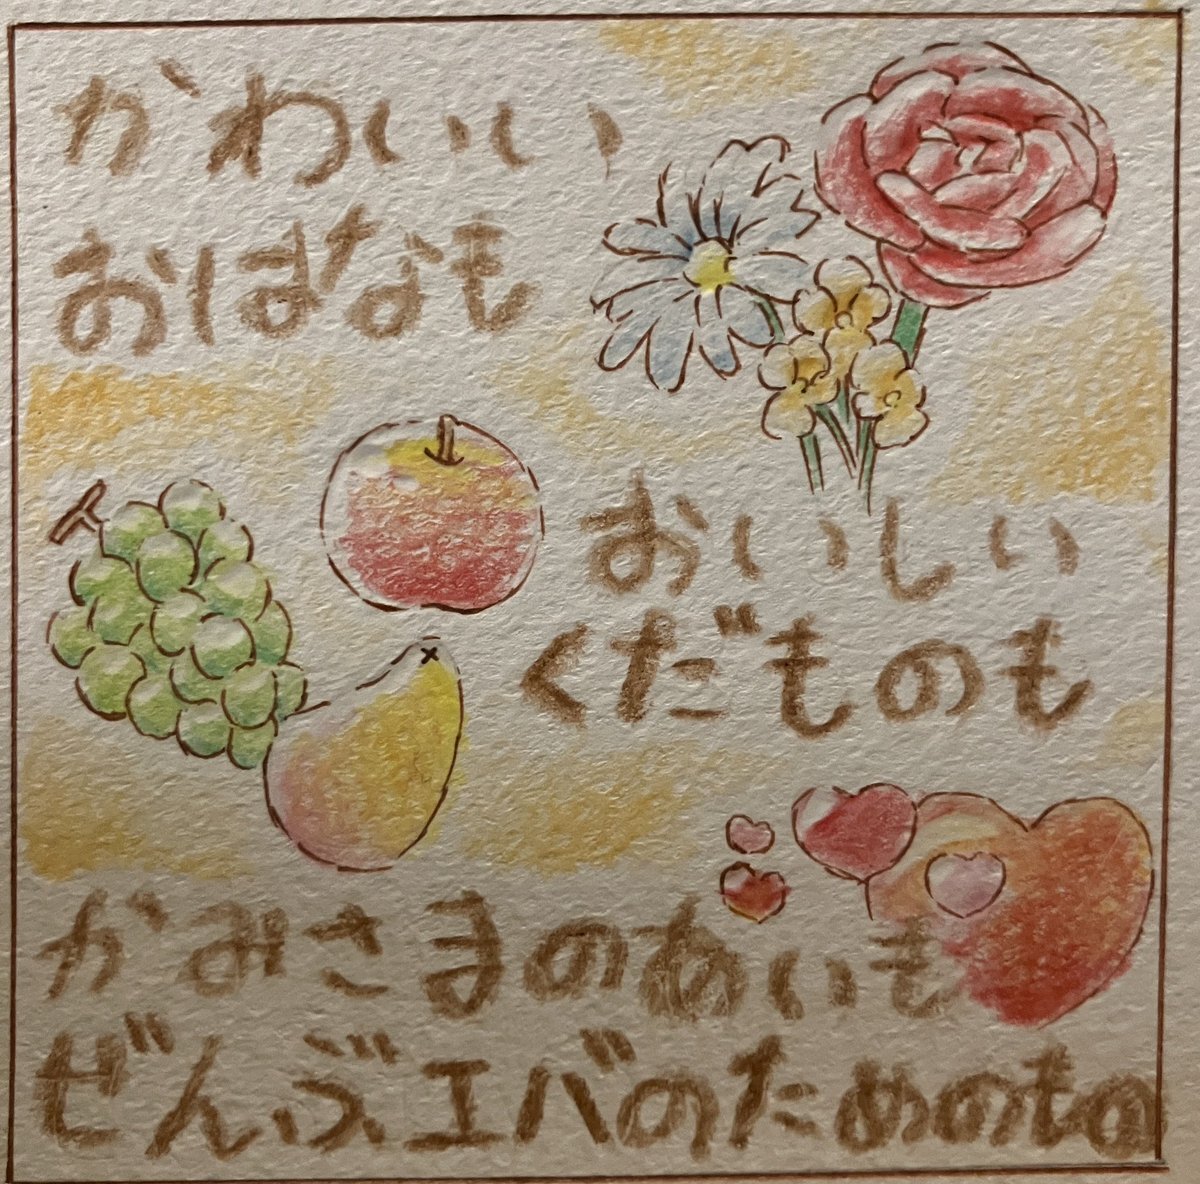 かわいい
おはなも
おいしい
くだものも
かみさまのあいも
ぜんぶエバのためのもの